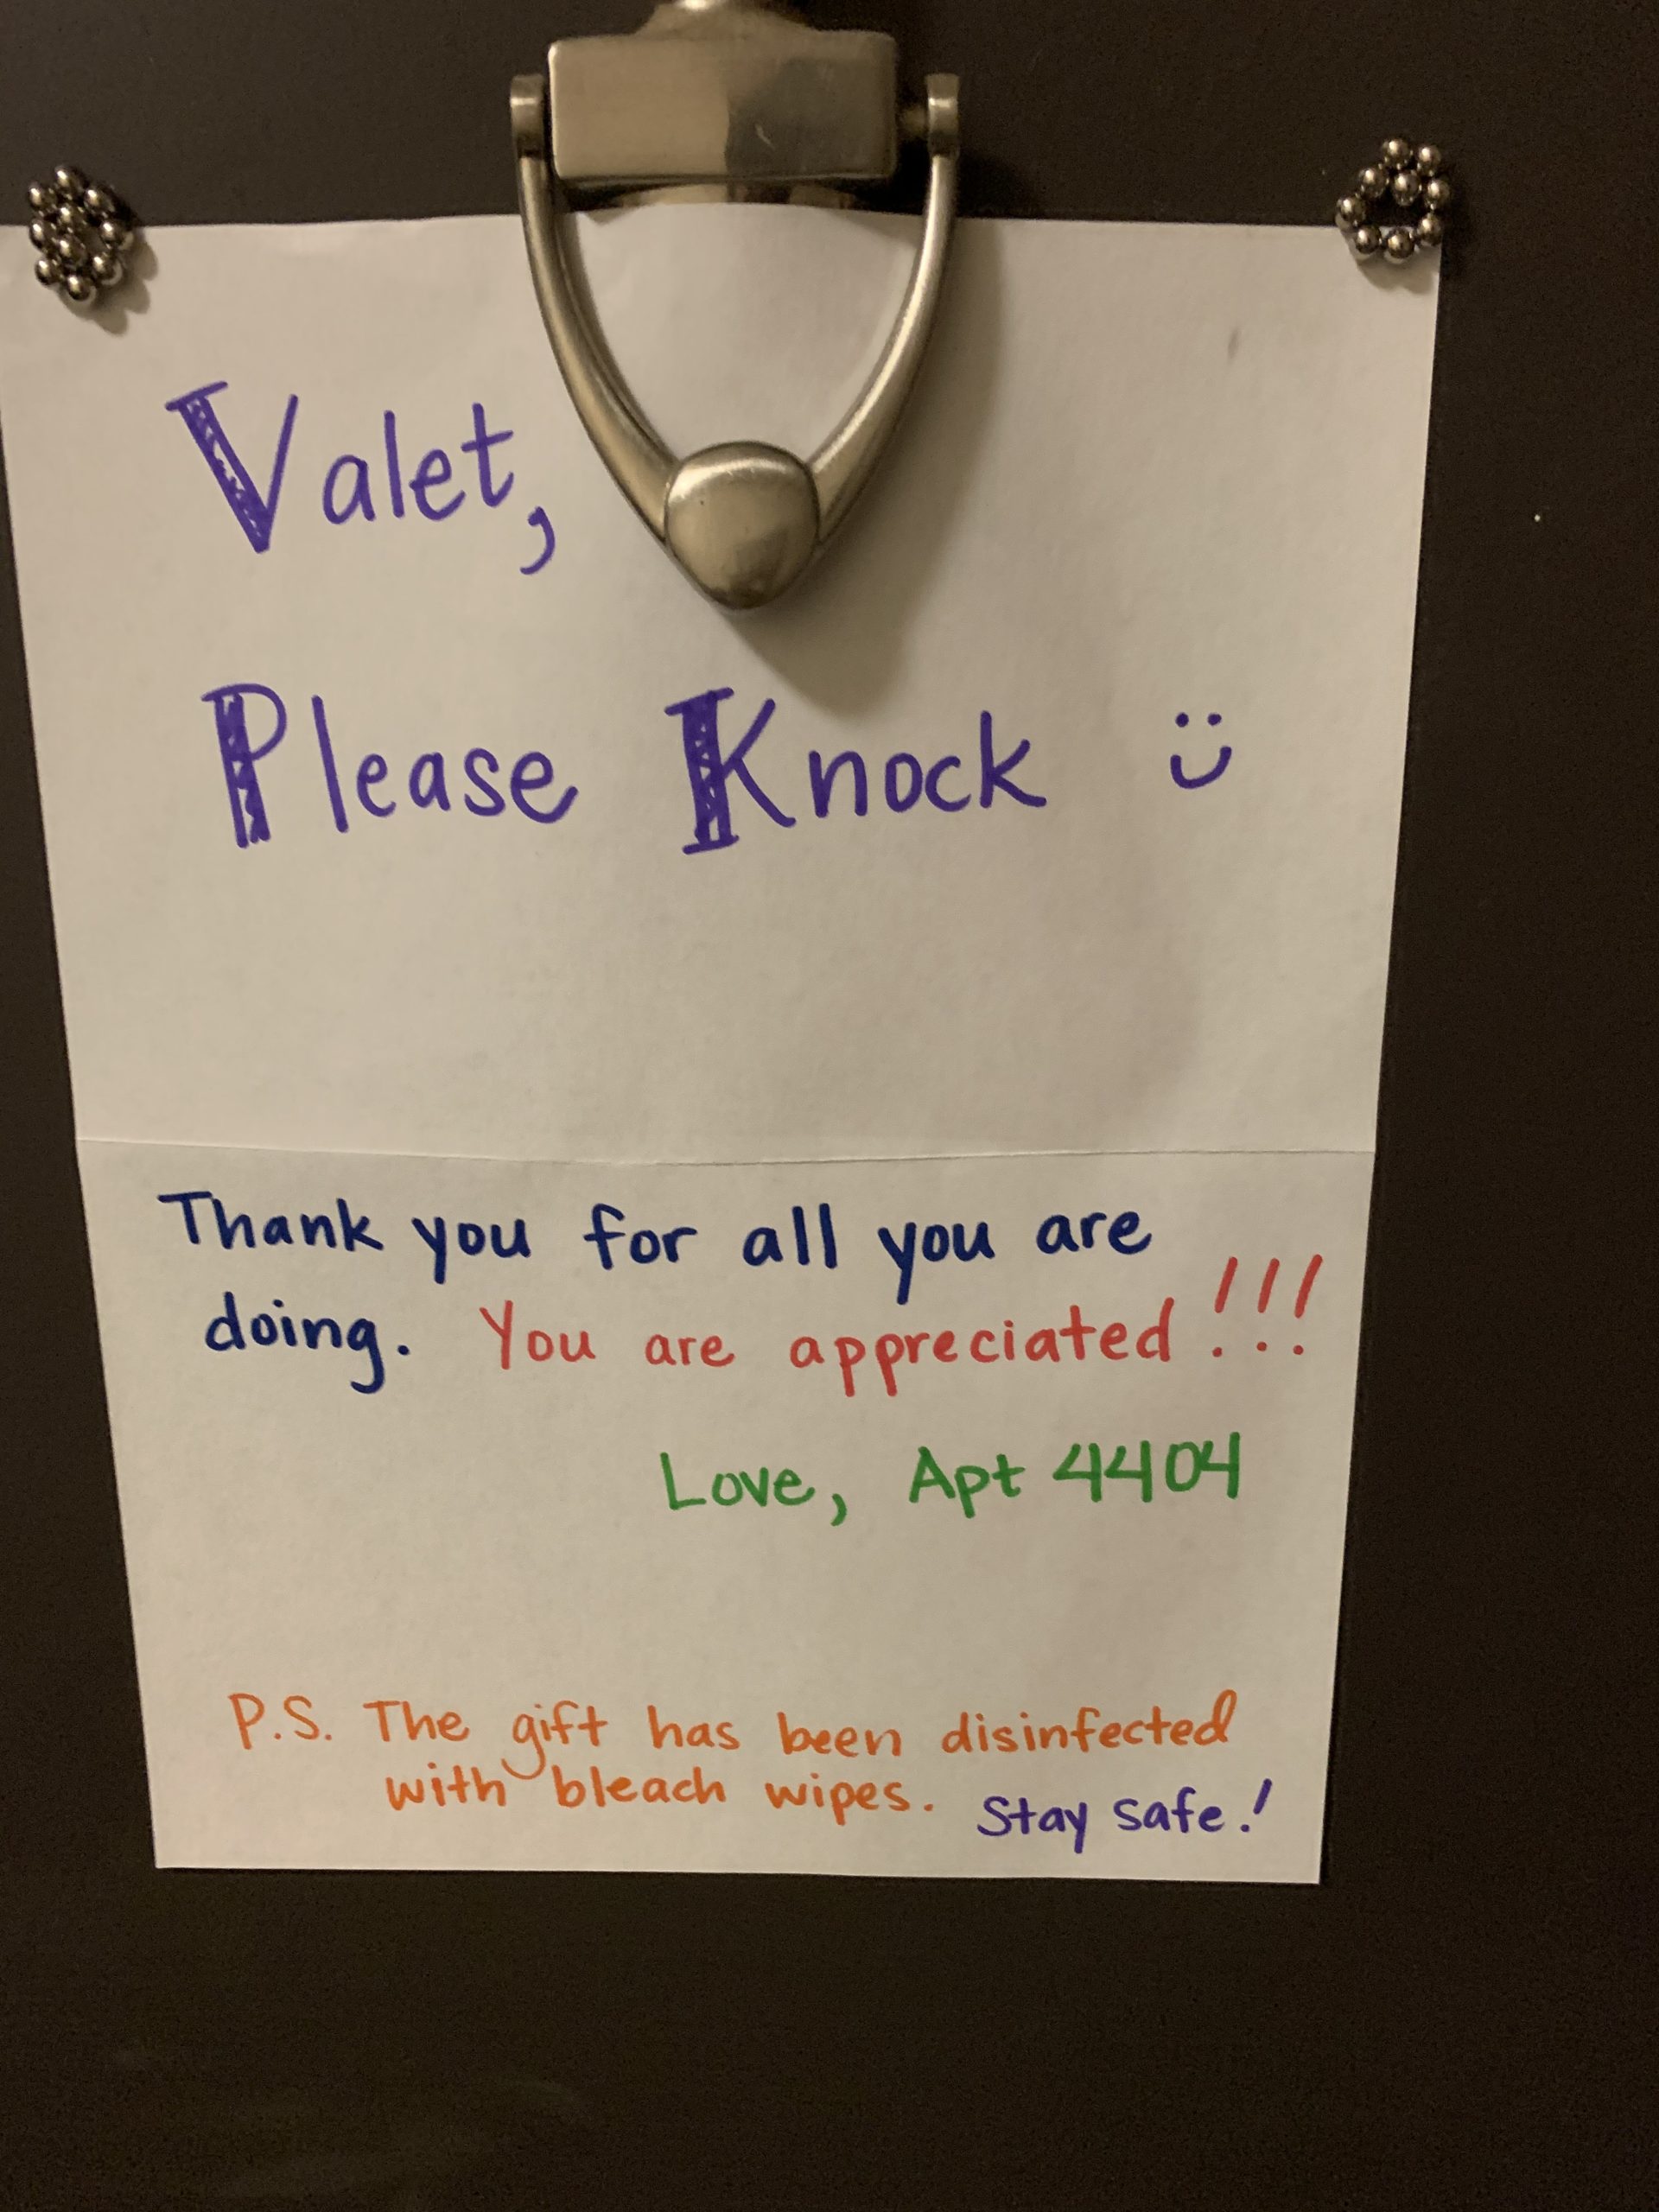 Valet,
Please Knock
Thank you for all you are
doing. You are appreciated!!!
Love, Apt 4404
P.S. The gift has been disinfected
with bleach wipes. Stay safe!